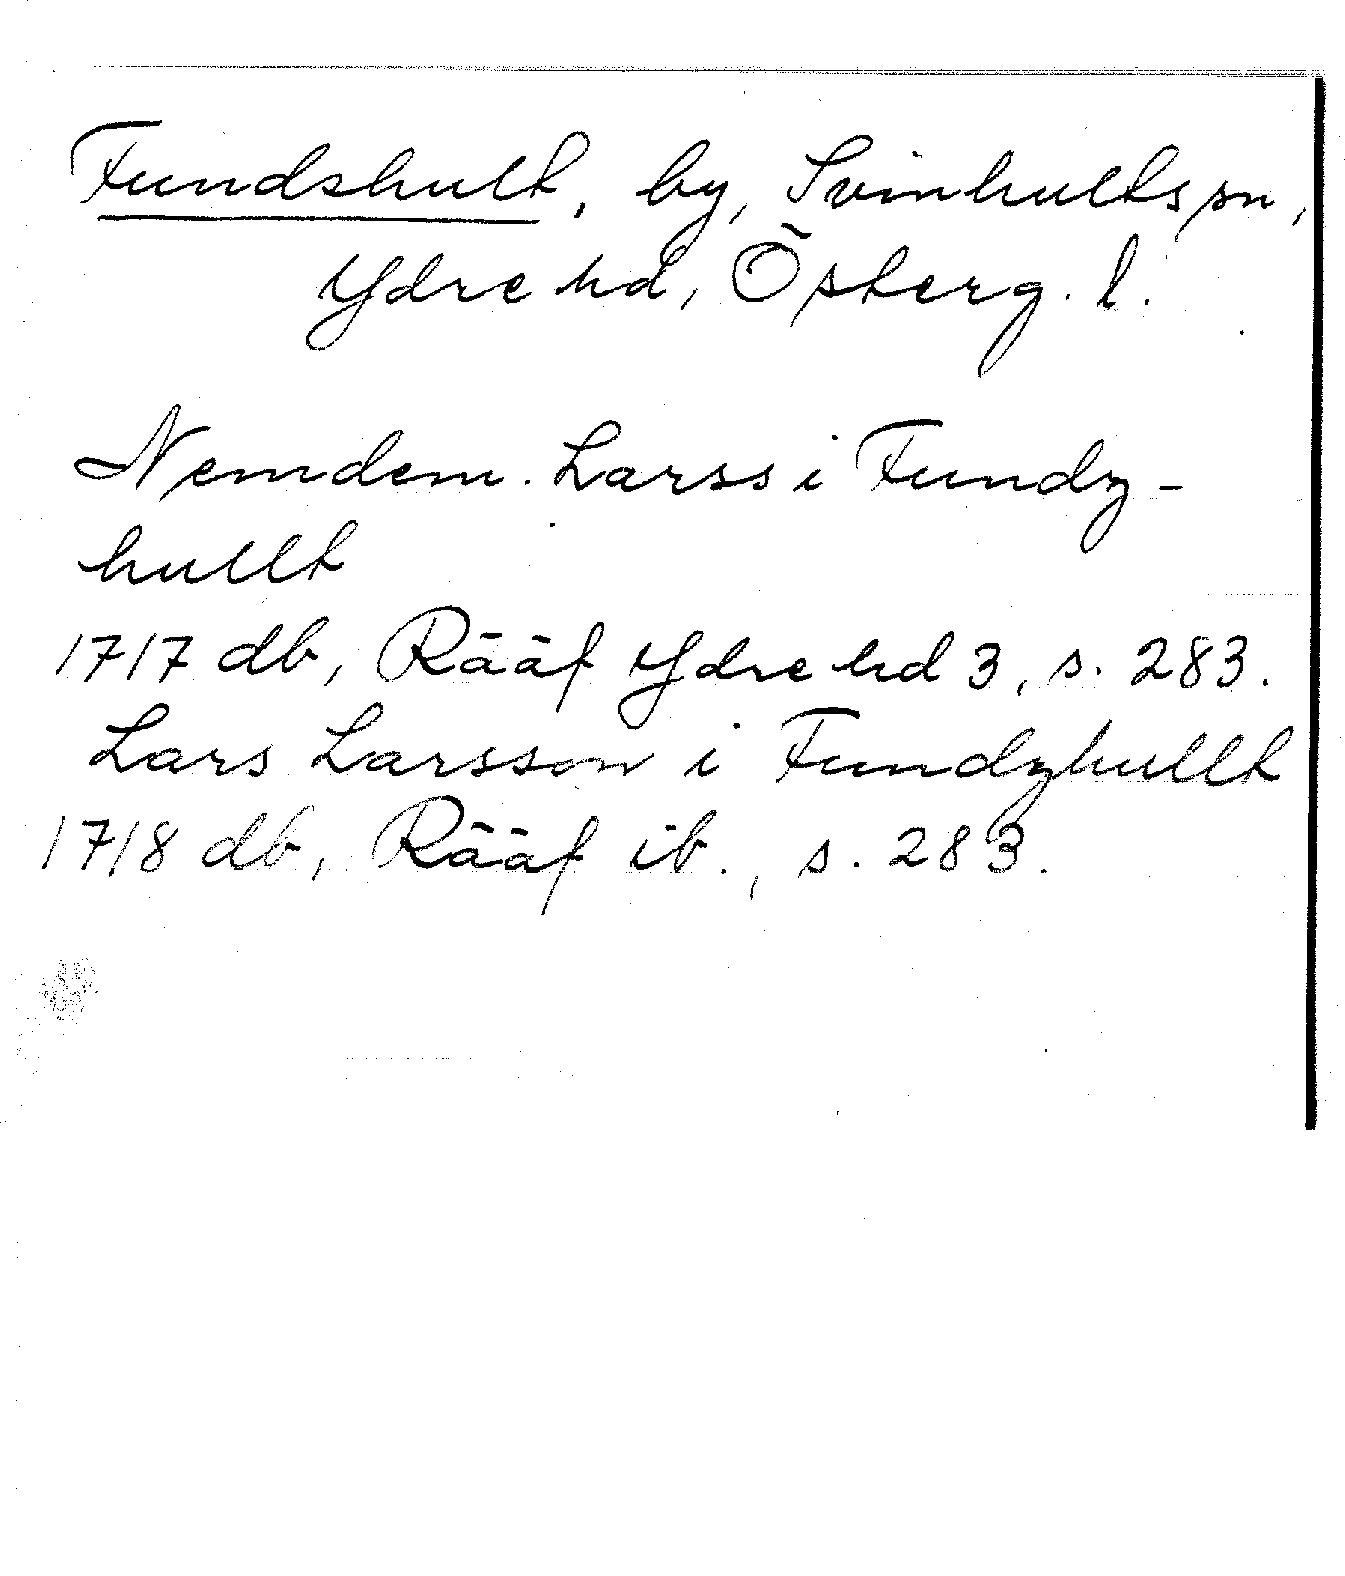 Fundshult, by, Svinhults sn,
Ydre hd, Österg. l.
Nemdem. Larss i Fundz-
hullt
1717 db, Rääf Ydre hd 3, s. 283.
Lars Larsson i Fundzhullt
1718 db, Rääf ib., s. 283.